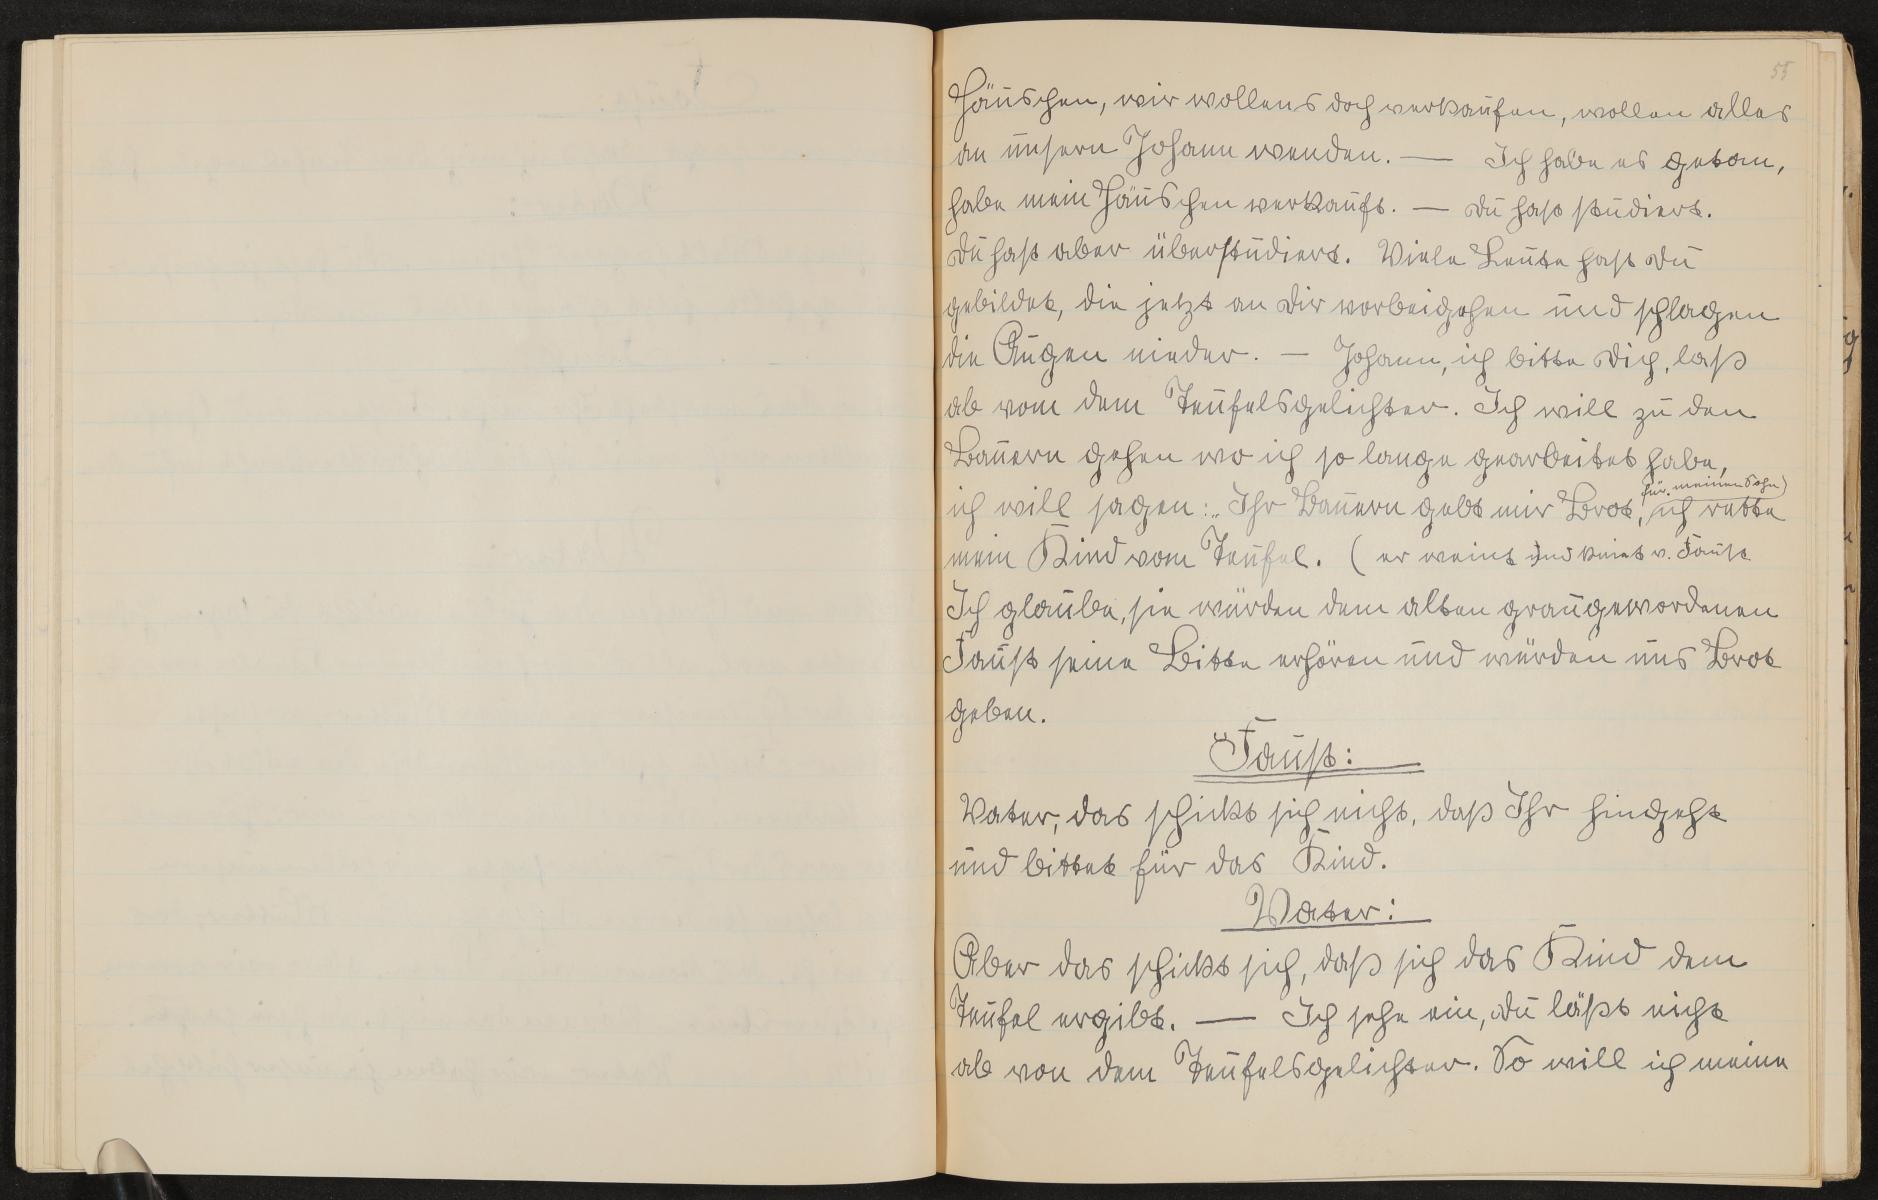 55
Häuschen, wir wollens doch verkaufen, wollen alles
an unsern Johann wenden. — Ich habe es getan,
habe mein Häuschen verkauft. — Du hast studiert.
Du hast aber überstudiert. Viele Leute hast Du
gebildet, die jetzt an Dir vorbeigehen und schlagen
die Augen nieder. — Johann, ich bitte Dich, laß
ab vom dem Teufelsgelichter. Ich will zu den
Bauern gehen wo ich so lange gearbeitet habe,
für meinen Sohn)
ich will sagen: „Ihr Bauern gebt mir Brot, ich rette
mein Kind vom Teufel. (er weint und kniet v. Faust
Ich glaube, sie würden dem alten graugewordenen
Faust seine Bitte erhören und würden uns Brot
geben.
Faust:
Vater, das schickt sich nicht, daß Ihr hingeht
und bittet für das Kind.
Vater:
Aber das schickt sich, daß sich das Kind dem
Teufel ergibt. — Ich sehe ein, Du läßt nicht
ab von dem Teufelsgelichter. So will ich meine